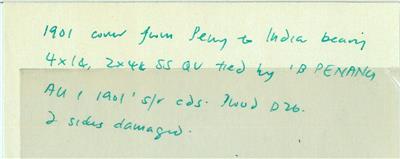 1901 cover from Peng to India bearing
4x1¢, 2x4¢ SS QV tied by 'B PENANG
AU 1 1901' s/r cds. Proud D26.
2 sides damaged.